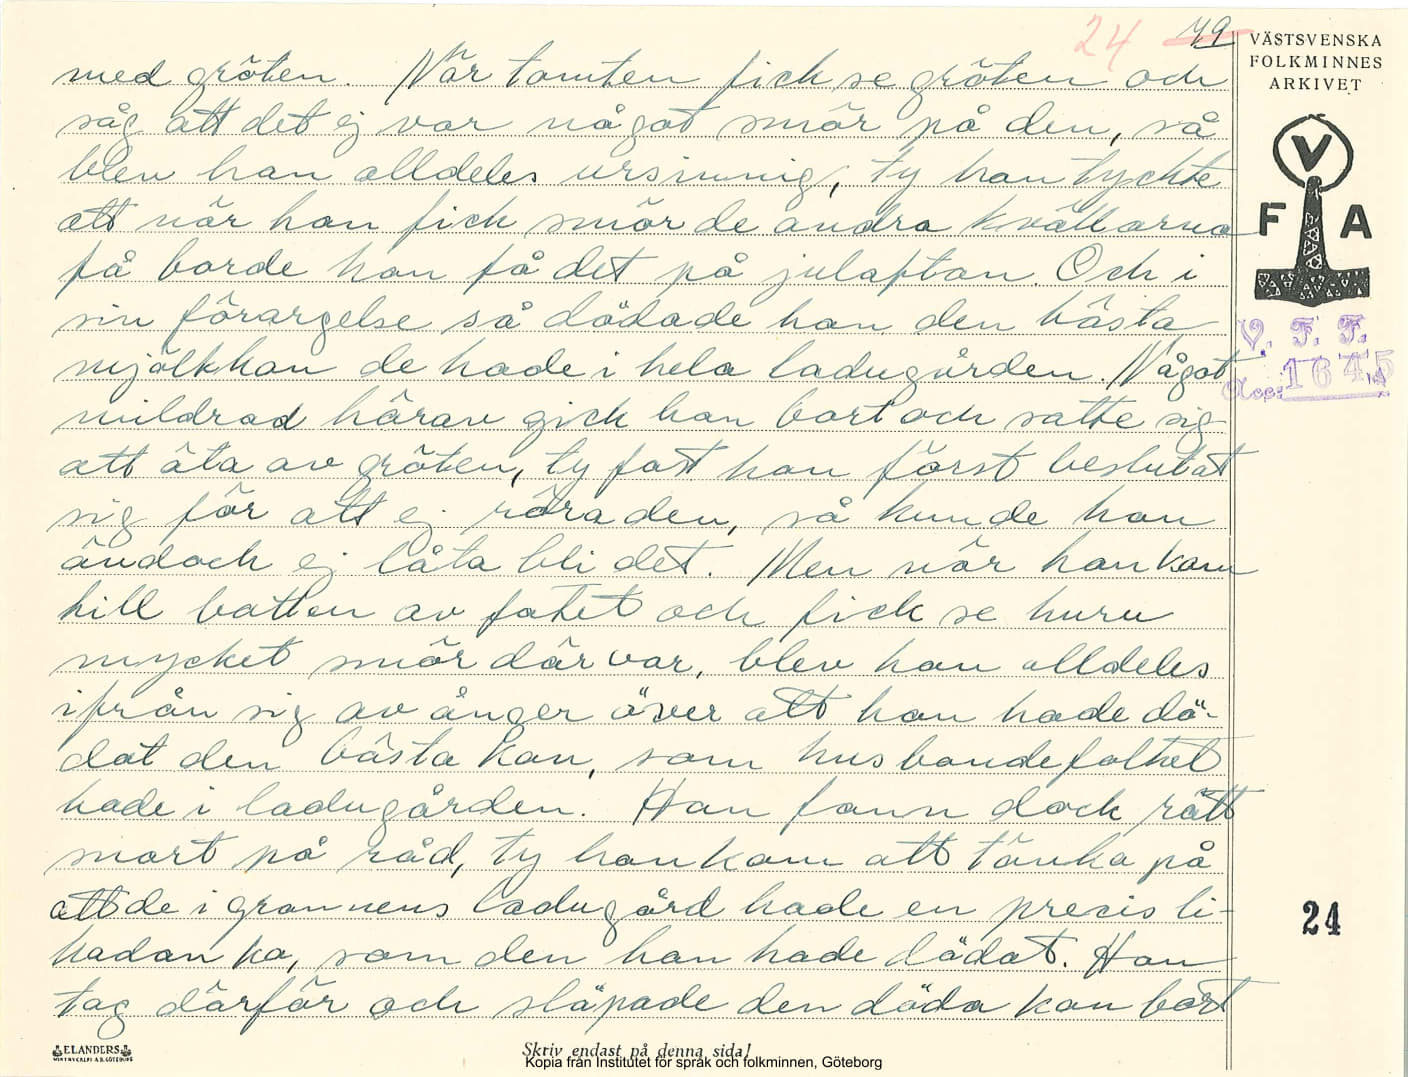 24 49
VÄSTSVENSKA
FOLKMINNES
ARKIVET
V
F A
V. F. F.
Acc: 1645
med gröten. När tomten fick se gröten och
såg att det ej var något smör på den, så
blev han alldeles ursinnig, ty han tyckte
att när han fick smör de andra kvällarna
så borde han få det på julaftan. Och i
sin förargelse så dödade han den bästa
mjölkkon de hade i hela ladugården. Något
mildrad härav gick han bort och satte sig
att äta av gröten, ty fast han först beslutat
sig för att ej röra den, så kunde han
ändock ej låta bli det. Men när han kom
till botten av fatet och fick se huru
mycket smör där var, blev han alldeles
ifrån sig av ånger över att han hade dö-
dat den bästa kon, som husbondefolket
hade i ladugården. Han fann dock rätt
snart på råd, ty han kom att tänka på
att de i grannens ladugård hade en precis li-
kadan ko, som den han hade dödat. Han
tog därför och släpade den döda kon bort
24
ELANDERS
Skriv endast på denna sida!
Kopia från Institutet för språk och folkminnen, Göteborg